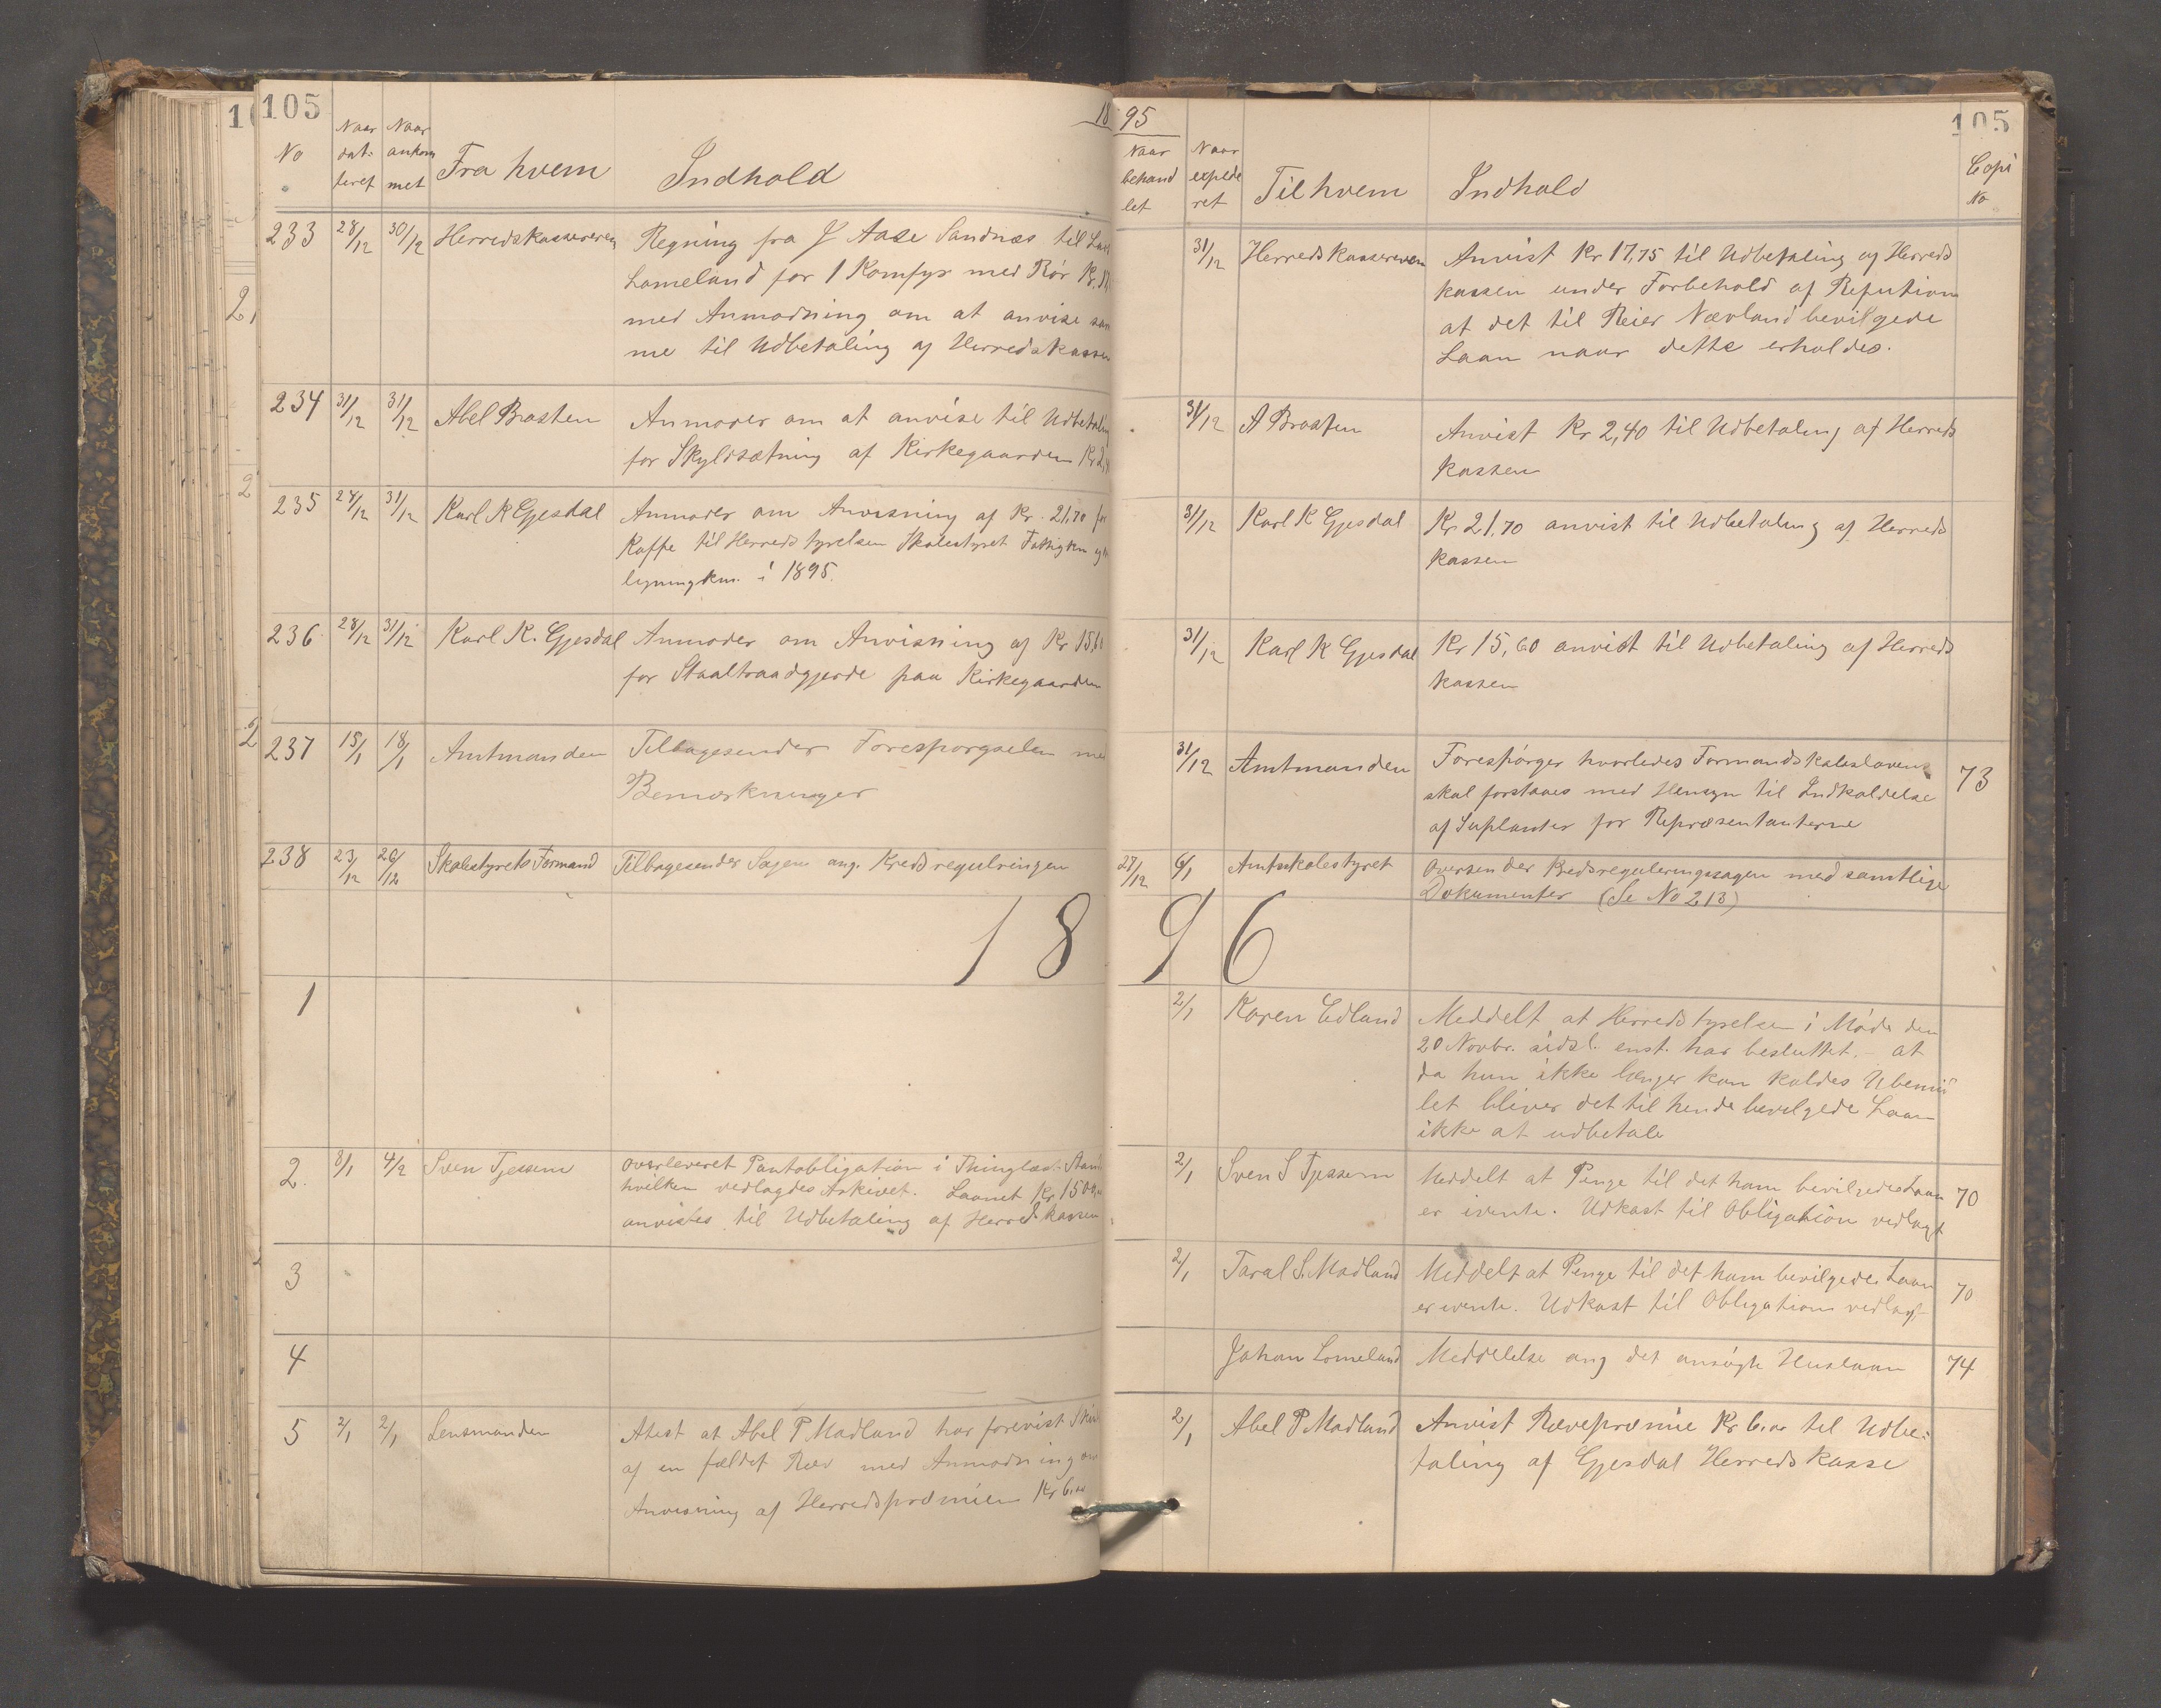 105
18
No
Naar dateret
Naar ankommet
Fra hvem
Indhold
233 28/12 30/12 Herredskassereren Regning fra J Aase Sandnæs til
Lomeland for 1 Komfyr med Rør Kr.
med Anmodning om at anvise sam
me til Udbetaling af Herredskassen
234 31/12 31/12 Abel Brasten Anmoder om at anvise til Udbetaling
for Skyldsætning af Kirkegaarden Kr 2,
235 24/12 31/12 Karl K Gjesdal Anmoder om Anvisning af Kr. 21,70 for
Kaffe til Herredstyrelsen Skolestyret Fattigkm og
ligningkm. i 1895.
236 28/12 31/12 Karl K. Gjesdal Anmoder om Anvisning af Kr 15,60
for Staaltraadgjerde paa Kirkegaarden
237 15/1 18/1 Amtmanden Tilbagesender Forespørgselen med
Bemærkninger
238 23/12 26/12 Skolestyrets Formand Tilbagesender Sagen ang. Kredsregulringen
18
1
2. 8/1 4/2 Sven Tjessem overleveret Pantobligation i Thinglæst Stand
hvilken vedlagdes Arkivet. Laanet Kr 1500,
anvistes til Udbetaling af Herredskassen
3
4
5 2/1 2/1 Lensmanden Atest at Abel P Madland har forevist Skin
af en fældet Ræv med Anmodning om
Anvisning af Herredspræmien Kr 6.00
95
105
Naar behandlet
Naar expederet
Til hvem
Indhold
Copi No
31/12 Herredskassereren Anvist Kr 17,75 til Udbetaling af Herreds
kassen under Forbehold af Refution
at det til Reier Nævland bevilgede
Laan naar dette erholdes.
31/12 A Brasten Anvist Kr 2,40 til Udbetaling af Herreds
kassen
31/12 Karl K Gjesdal Kr 21,70 anvist til Udbetaling af Herreds
kassen
31/12 Karl K Gjesdal Kr 15,60 anvist til Udbetaling af Herreds
kassen
31/12 Amtmanden Forespørger hvorledes Formandskabsloven
skal forstaaes med Hensyn til Indkaldelse 73
af Suplanter for Repræsentanterne
27/12 6/1 Amtsskolestyret Oversender Kredsreguleringssagen med samtlige
Dokumenter (Se No 213)
96
2/1 Karen Edland Meddelt at Herredstyrelsen i Møde den
20 Novbr. sidstl. enst. har besluttet. - at
da hun ikke længer kan kaldes Ubemid
let bliver det til hende bevilgede Laan
ikke at udbetale
2/1 Sven S Tjessem Meddelt at Penge til det ham bevilgede Laan 70
er ivente. Udkast til Obligation vedlagt
2/1 Taral S. Madland Meddelt at Penge til det ham bevilgede Laan
er ivente. Udkast til Obligation vedlagt 70
Johan Lomeland Meddelelse ang det ansøgte Huslaan 74
2/1 Abel P Madland Anvist Rævepræmie Kr 6.00 til Udbe-
taling af Gjesdal Herredskasse